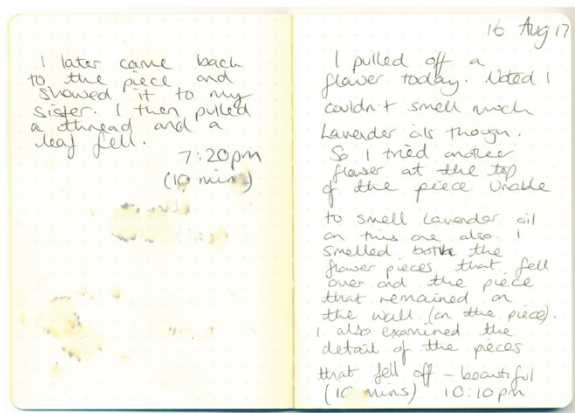 I later came back
to the piece and
showed it to my
sister. I then pulled
a thread and a
leaf fell.
7:20pm
(10 mins)
16 Aug 17
I pulled off a
flower today. Noted I
couldn't smell much
Lavender oils though.
So I tried another
flower at the top
of the piece. Unable
to smell Lavender oil
on this one also. I
smelled both the
flower pieces that fell
over and the piece
that remained on
the wall (on the piece).
I also examined the
detail of the pieces
that fell off - beautiful
(10 mins) 10:10pm